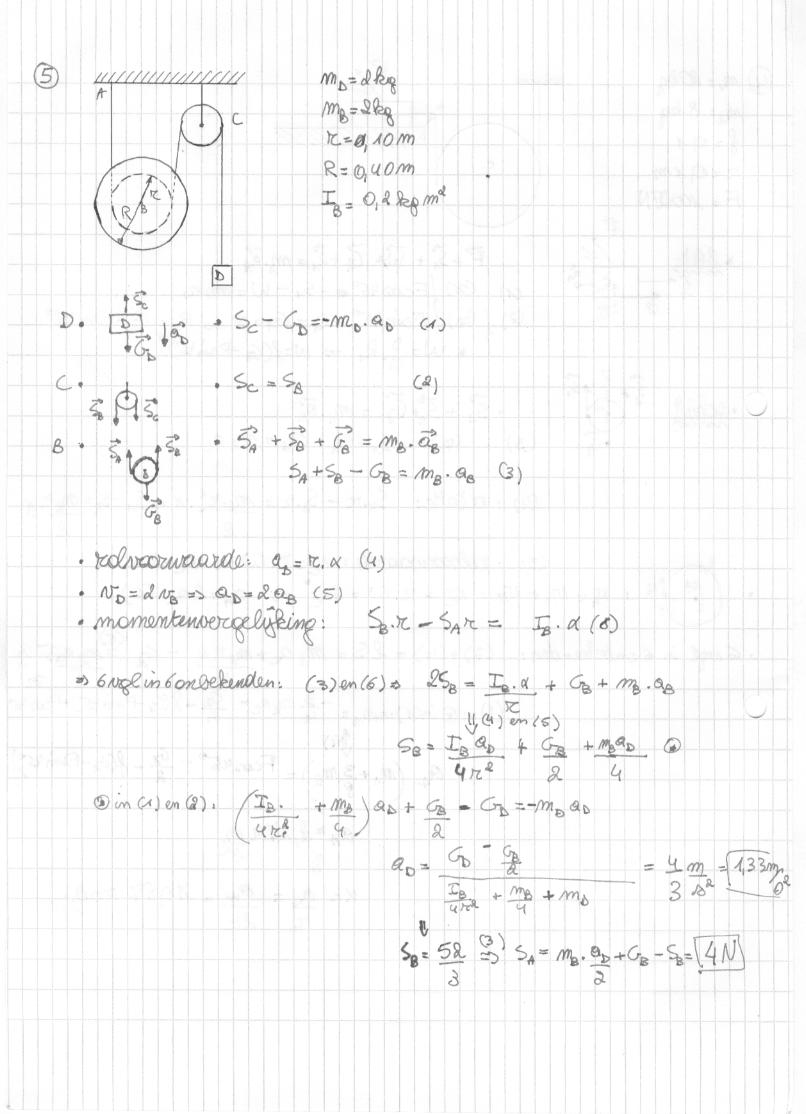 5
A
C
r
R
B
D
m_D = 2kg
m_B = 2kg
r = 0,10m
R = 0,40m
I_B = 0,2kgm²
D. S_C D G_D a_D • S_C - G_D = -m_D . a_D (1)
C. S_B S_C • S_C = S_B (2)
B • S_A S_B B G_B • S_A + S_B + G_B = m_B . a_B
S_A + S_B - G_B = m_B . a_B (3)
• rolvoorwaarde: a_B = r. α (4)
• v_D = 2v_B => a_D = 2a_B (5)
• momentenvergelijking: S_B.r - S_A r = I_B . α (6)
=> 6 vgl in 6 onbekenden: (3) en (6) => 2S_B = I_B . α / r + G_B + m_B . a_B
⇓ (4) en (5)
S_B = I_B a_D / 4r² + G_B / 2 + m_B a_D / 4
in (1) en (2): (I_B. / 4r² + m_B / 4) a_D + G_B / 2 - G_D = -m_D a_D
a_D = (G_D - G_B / 2) / (I_B / 4r² + m_B / 4 + m_D) = 4/3 m/s² = 1,33m/s²
↓
S_B = 52/3 (3)=> S_A = m_B . a_D / 2 + G_B - S_B = 4N